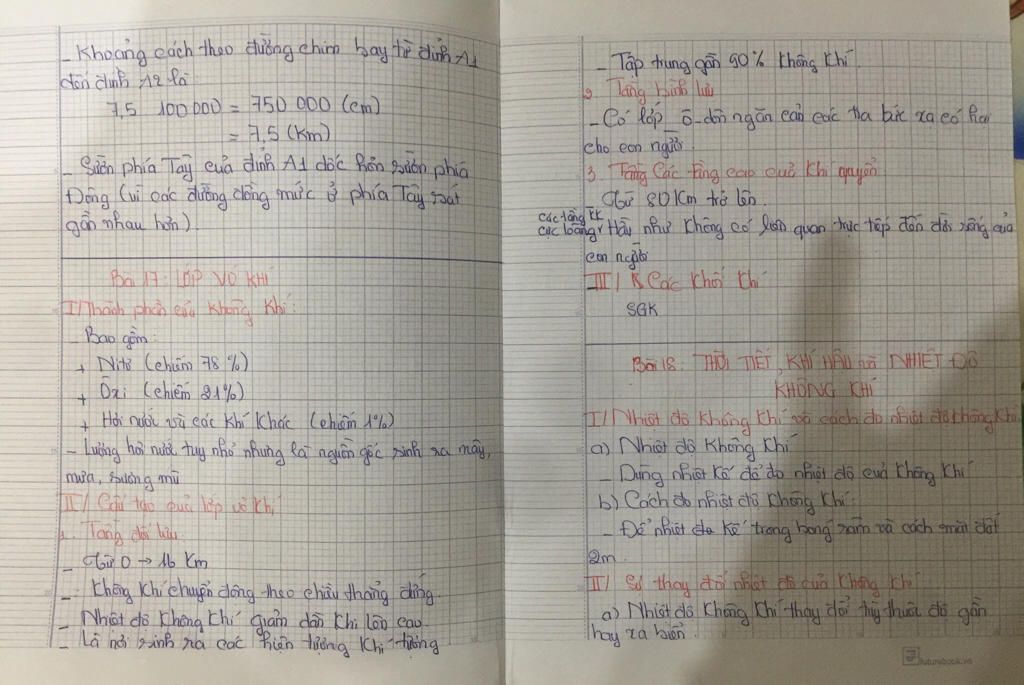 - Khoảng cách theo đường chim bay từ đỉnh A1
đến đỉnh A2 là:
7,5 100 000 = 750 000 (cm)
= 7,5 (km)
- Sườn phía Tây của đỉnh A1 dốc hơn sườn phía
Đông (vì các đường đồng mức ở phía Tây sát
gần nhau hơn).
Bài 17: LỚP VỎ KHÍ
I/ Thành phần của không khí:
- Bao gồm:
+ Nitơ (chiếm 78%)
+ Ôxi (chiếm 21%)
+ Hơi nước và các khí khác (chiếm 1%)
- Lượng hơi nước tuy nhỏ nhưng là nguồn gốc sinh ra mây,
mưa, sương mù
II/ Cấu tạo của lớp vỏ khí
1. Tầng đối lưu
- Từ 0 → 16 km
- Không khí chuyển động theo chiều thẳng đứng.
- Nhiệt độ không khí giảm dần khi lên cao.
- Là nơi sinh ra các hiện tượng khí tượng
- Tập trung gần 90% không khí.
2. Tầng bình lưu
- Có lớp ô-dôn ngăn cản các tia bức xạ có hại
cho con người.
3. Tầng Các tầng cao của khí quyển
Từ 80 km trở lên.
các tầng kk
cực loãng Hầu như không có liên quan trực tiếp đến đời sống của
con người
III/ Các khối khí
SGK
Bài 18: THỜI TIẾT, KHÍ HẬU và NHIỆT ĐỘ
KHÔNG KHÍ
I/ Nhiệt độ không khí và cách đo nhiệt độ không khí
a) Nhiệt độ không khí
- Dùng nhiệt kế để đo nhiệt độ của không khí
b) Cách đo nhiệt độ không khí:
- Để nhiệt kế trong bóng râm và cách mặt đất
2m.
II/ Sự thay đổi nhiệt độ của không khí
a) Nhiệt độ không khí thay đổi tùy thuộc độ gần
hay xa biển.
futurebook.vn